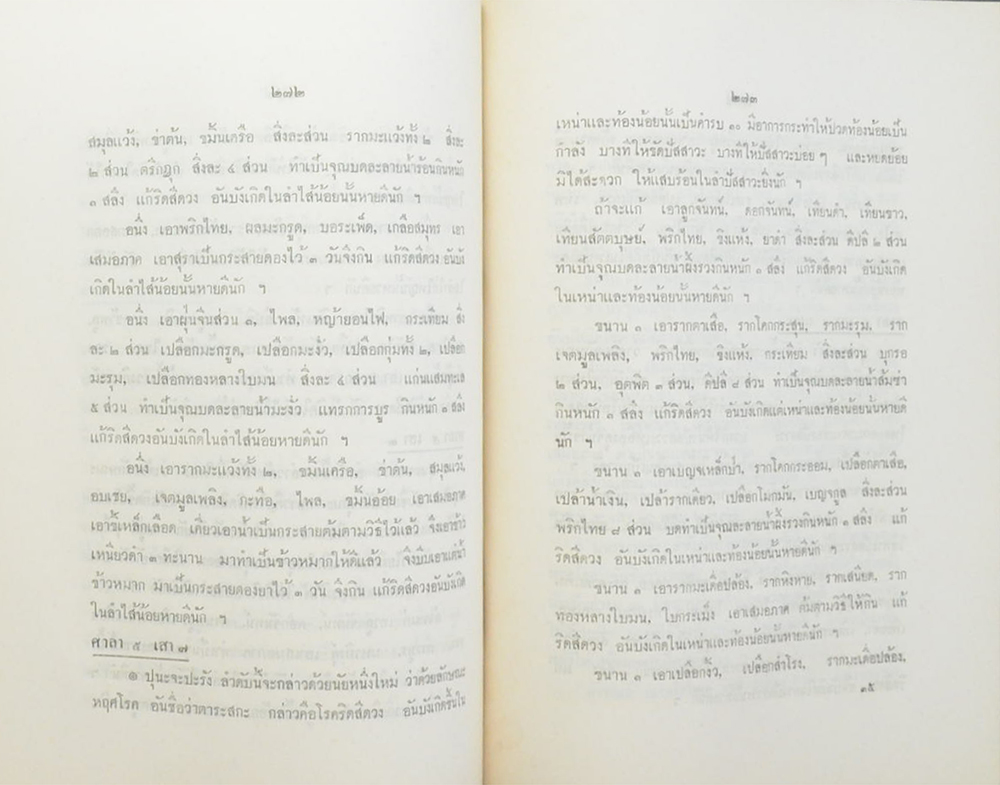 ๒๗๒
สมุลแว้ง, ข่าต้น, ขมิ้นเครือ สิ่งละส่วน รากมะแว้งทั้ง ๒ สิ่งละ
๒ ส่วน ตรีกฏุก สิ่งละ ๔ ส่วน ทำเป็นจุณบดละลายน้ำร้อนกินหนัก
๑ สลึง แก้ริดสีดวง อันบังเกิดในลำไส้น้อยนั้นหายดีนัก ฯ
อนึ่ง เอาพริกไทย, ผลมะกรูด, บอระเพ็ด, เกลือสมุทร เอา
เสมอภาค เอาสุราเป็นกระสายดองไว้ ๓ วันจึงกิน แก้ริดสีดวง อันบัง
เกิดในลำไส้น้อยนั้นหายดีนัก ฯ
อนึ่ง เอาฝุ่นจีนส่วน ๑, ไพล, หญ้ายอนไฟ, กระเทียม สิ่ง
ละ ๒ ส่วน เปลือกมะกรูด, เปลือกมะงั่ว, เปลือกกุ่มทั้ง ๒, เปลือก
มะรุม, เปลือกทองหลางใบมน สิ่งละ ๔ ส่วน แก่นแสมทะเล
๕ ส่วน ทำเป็นจุณบดละลายน้ำมะงั่ว แทรกการบูร กินหนัก ๑ สลึง
แก้ริดสีดวงอันบังเกิดในลำไส้น้อยหายดีนัก ฯ
อนึ่ง เอารากมะแว้งทั้ง ๒, ขมิ้นเครือ, ข่าต้น, สมุลแว้ง,
อบเชย, เจตมูลเพลิง, กะทือ, ไพล, ขมิ้นอ้อย เอาเสมอภาค
เอาขี้เหล็กเลือด เคี่ยวเอาน้ำเป็นกระสายต้มตามวิธีไว้แล้ว จึงเอาข้าว
เหนียวดำ ๑ ทะนาน มาทำเป็นข้าวหมากให้ดีแล้ว จึงบีบเอาแต่น้ำ
ข้าวหมาก มาเป็นกระสายดองยาไว้ ๓ วัน จึงกิน แก้ริดสีดวงอันบังเกิด
ในลำไส้น้อยหายดีนัก ฯ
ศาลา ๕ เสา ๗
๏ ปุนะจะปะรัง ลำดับนี้จะกล่าวด้วยนัยหนึ่งใหม่ ว่าด้วยลักษณะ
หฤศโรค อันชื่อว่าตาระสกะ กล่าวคือโรคริดสีดวง อันบังเกิดขึ้นใน
๒๗๓
เหน่าและท้องน้อยนั้นเป็นคำรบ ๑๐ มีอาการกระทำให้ปวดท้องน้อยเป็น
กำลัง บางทีให้ขัดปัสสาวะ บางทีให้ปัสสาวะบ่อย ๆ และหยดย้อย
มิได้สะดวก ให้แสบร้อนในลำปัสสาวะยิ่งนัก ฯ
ถ้าจะแก้ เอาลูกจันทน์, ดอกจันทน์, เทียนดำ, เทียนขาว,
เทียนสัตตบุษย์, พริกไทย, ขิงแห้ง, ยาดำ สิ่งละส่วน ดีปลี ๒ ส่วน
ทำเป็นจุณบดละลายน้ำผึ้งรวงกินหนัก ๑ สลึง แก้ริดสีดวง อันบังเกิด
ในเหน่าและท้องน้อยนั้นหายดีนัก ฯ
ขนาน ๑ เอารากตาเสือ, รากโคกกระสุน, รากมะรุม, ราก
เจตมูลเพลิง, พริกไทย, ขิงแห้ง, กระเทียม สิ่งละส่วน บุกรอ
๒ ส่วน, อุตพิด ๓ ส่วน, ดีปลี ๘ ส่วน ทำเป็นจุณบดละลายน้ำส้มซ่า
กินหนัก ๑ สลึง แก้ริดสีดวง อันบังเกิดแต่เหน่าและท้องน้อยนั้นหายดี
นัก ฯ
ขนาน ๑ เอาเบญจเหล็กป่า, รากโคกกระออม, เปลือกตาเสือ,
เปล้าน้ำเงิน, เปล้ารากเดียว, เปลือกโมกมัน, เบญจกูล สิ่งละส่วน
พริกไทย ๘ ส่วน บดทำเป็นจุณละลายน้ำผึ้งรวงกินหนัก ๑ สลึง แก้
ริดสีดวง อันบังเกิดในเหน่าและท้องน้อยนั้นหายดีนัก ฯ
ขนาน ๑ เอารากมะเดื่อปล้อง, รากหิงหาย, รากเสนียด, ราก
ทองหลางใบมน, ใบกระเม็ง เอาเสมอภาค ต้มตามวิธีให้กิน แก้
ริดสีดวง อันบังเกิดในเหน่าและท้องน้อยนั้นหายดีนัก ฯ
ขนาน ๑ เอาเปลือกงิ้ว, เปลือกสำโรง, รากมะเดื่อปล้อง,
๑๕